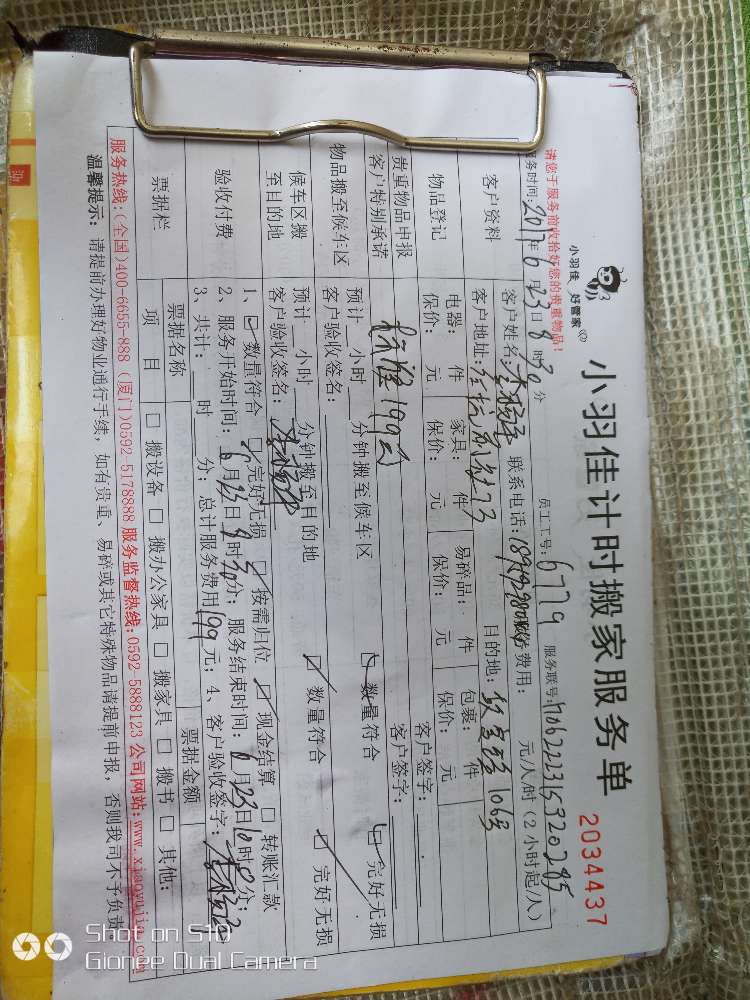 小羽佳 好管家
小羽佳计时搬家服务单
2034437
请您于服务前收拾好您的贵重物品!
服务时间: 2017年6月23日8时30分 员工工号: 6779 服务联号:
客户资料 客户姓名: 联系电话: 费用: 元/人/时(2小时起/人)
客户地址: 目的地: 106号
物品登记 电器: 件 家具: 件 易碎品: 件 包裹: 件
保价: 元 保价: 元 保价: 元 保价: 元
贵重物品申报 客户签字:
客户特别承诺 199元 客户签字:
物品搬至候车区 预计 小时 分钟搬至候车区 数量符合 完好无损
客户验收签名:
候车区搬至目的地 预计 小时 分钟搬至目的地 数量符合 完好无损
客户验收签名:
验收付费 1、数量符合 完好无损 按需归位 现金结算 转账汇款
2、服务开始时间: 6月23日8时30分; 服务结束时间: 6月23日10时 分;
3、共计: 时 分; 总计服务费用199元; 4、客户验收签字:
票据栏 票据名称 票据金额
项目 搬设备 搬办公家具 搬家具 搬书 其他:
服务热线:(全国)400-6655-888 (厦门)0592-5178888 服务监督热线:0592-5888123 公司网站:www.xiaoyujia.com
温馨提示: 请提前办理好物业通行手续, 如有贵重、易碎或其它特殊物品请提前申报, 否则我司不予负责
Shot on S10
Gionee Dual Camera